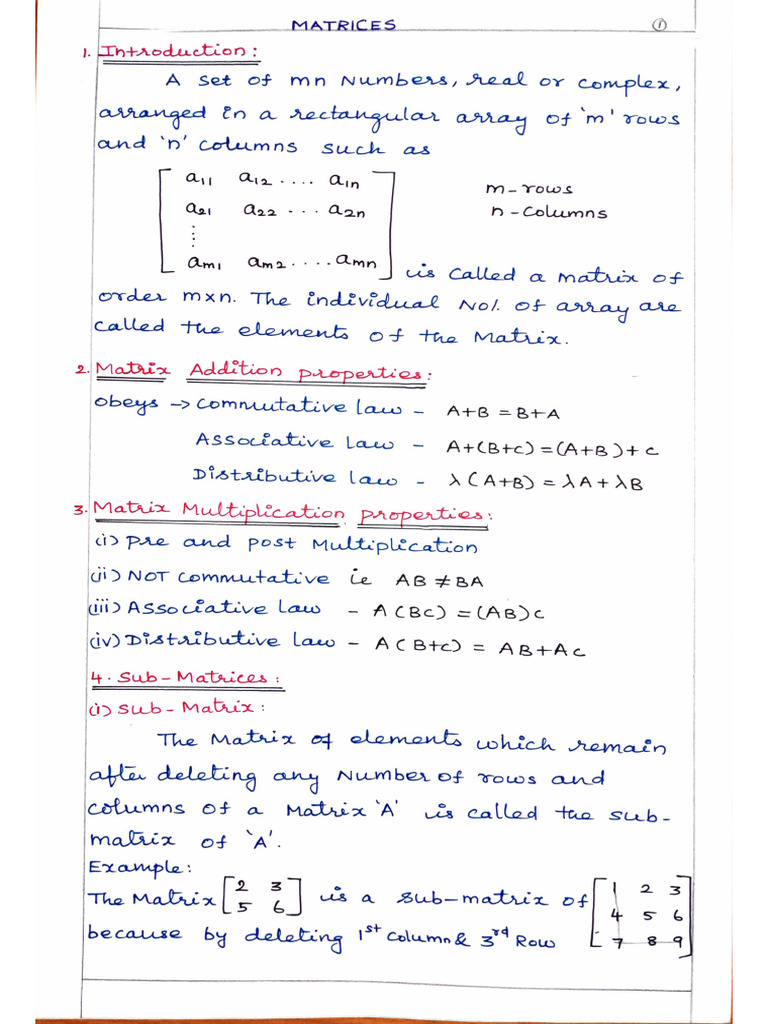 MATRICES ①
1. Introduction:
A set of mn Numbers, real or complex,
arranged in a rectangular array of 'm' rows
and 'n' columns such as
[ a11 a12 .... a1n
a21 a22 ... a2n
⋮
am1 am2 .... amn ]
m-rows
n-columns
is called a matrix of
order m×n. The individual No/. of array are
called the elements of the Matrix.
2. Matrix Addition properties:
obeys → Commutative law - A+B = B+A
Associative law - A+(B+C)=(A+B)+C
Distributive law - λ(A+B) = λA+λB
3. Matrix Multiplication properties:
(i) pre and post Multiplication
(ii) NOT commutative ie AB ≠ BA
(iii) Associative law - A(BC) = (AB)C
(iv) Distributive law - A(B+C) = AB+AC
4. Sub-Matrices:
(i) Sub-Matrix:
The Matrix of elements which remain
after deleting any Number of rows and
columns of a Matrix 'A' is called the sub-
matrix of 'A'.
Example:
The Matrix [2 3 5 6] is a sub-matrix of [1 2 3 4 5 6 7 8 9]
because by deleting 1st column & 3rd Row